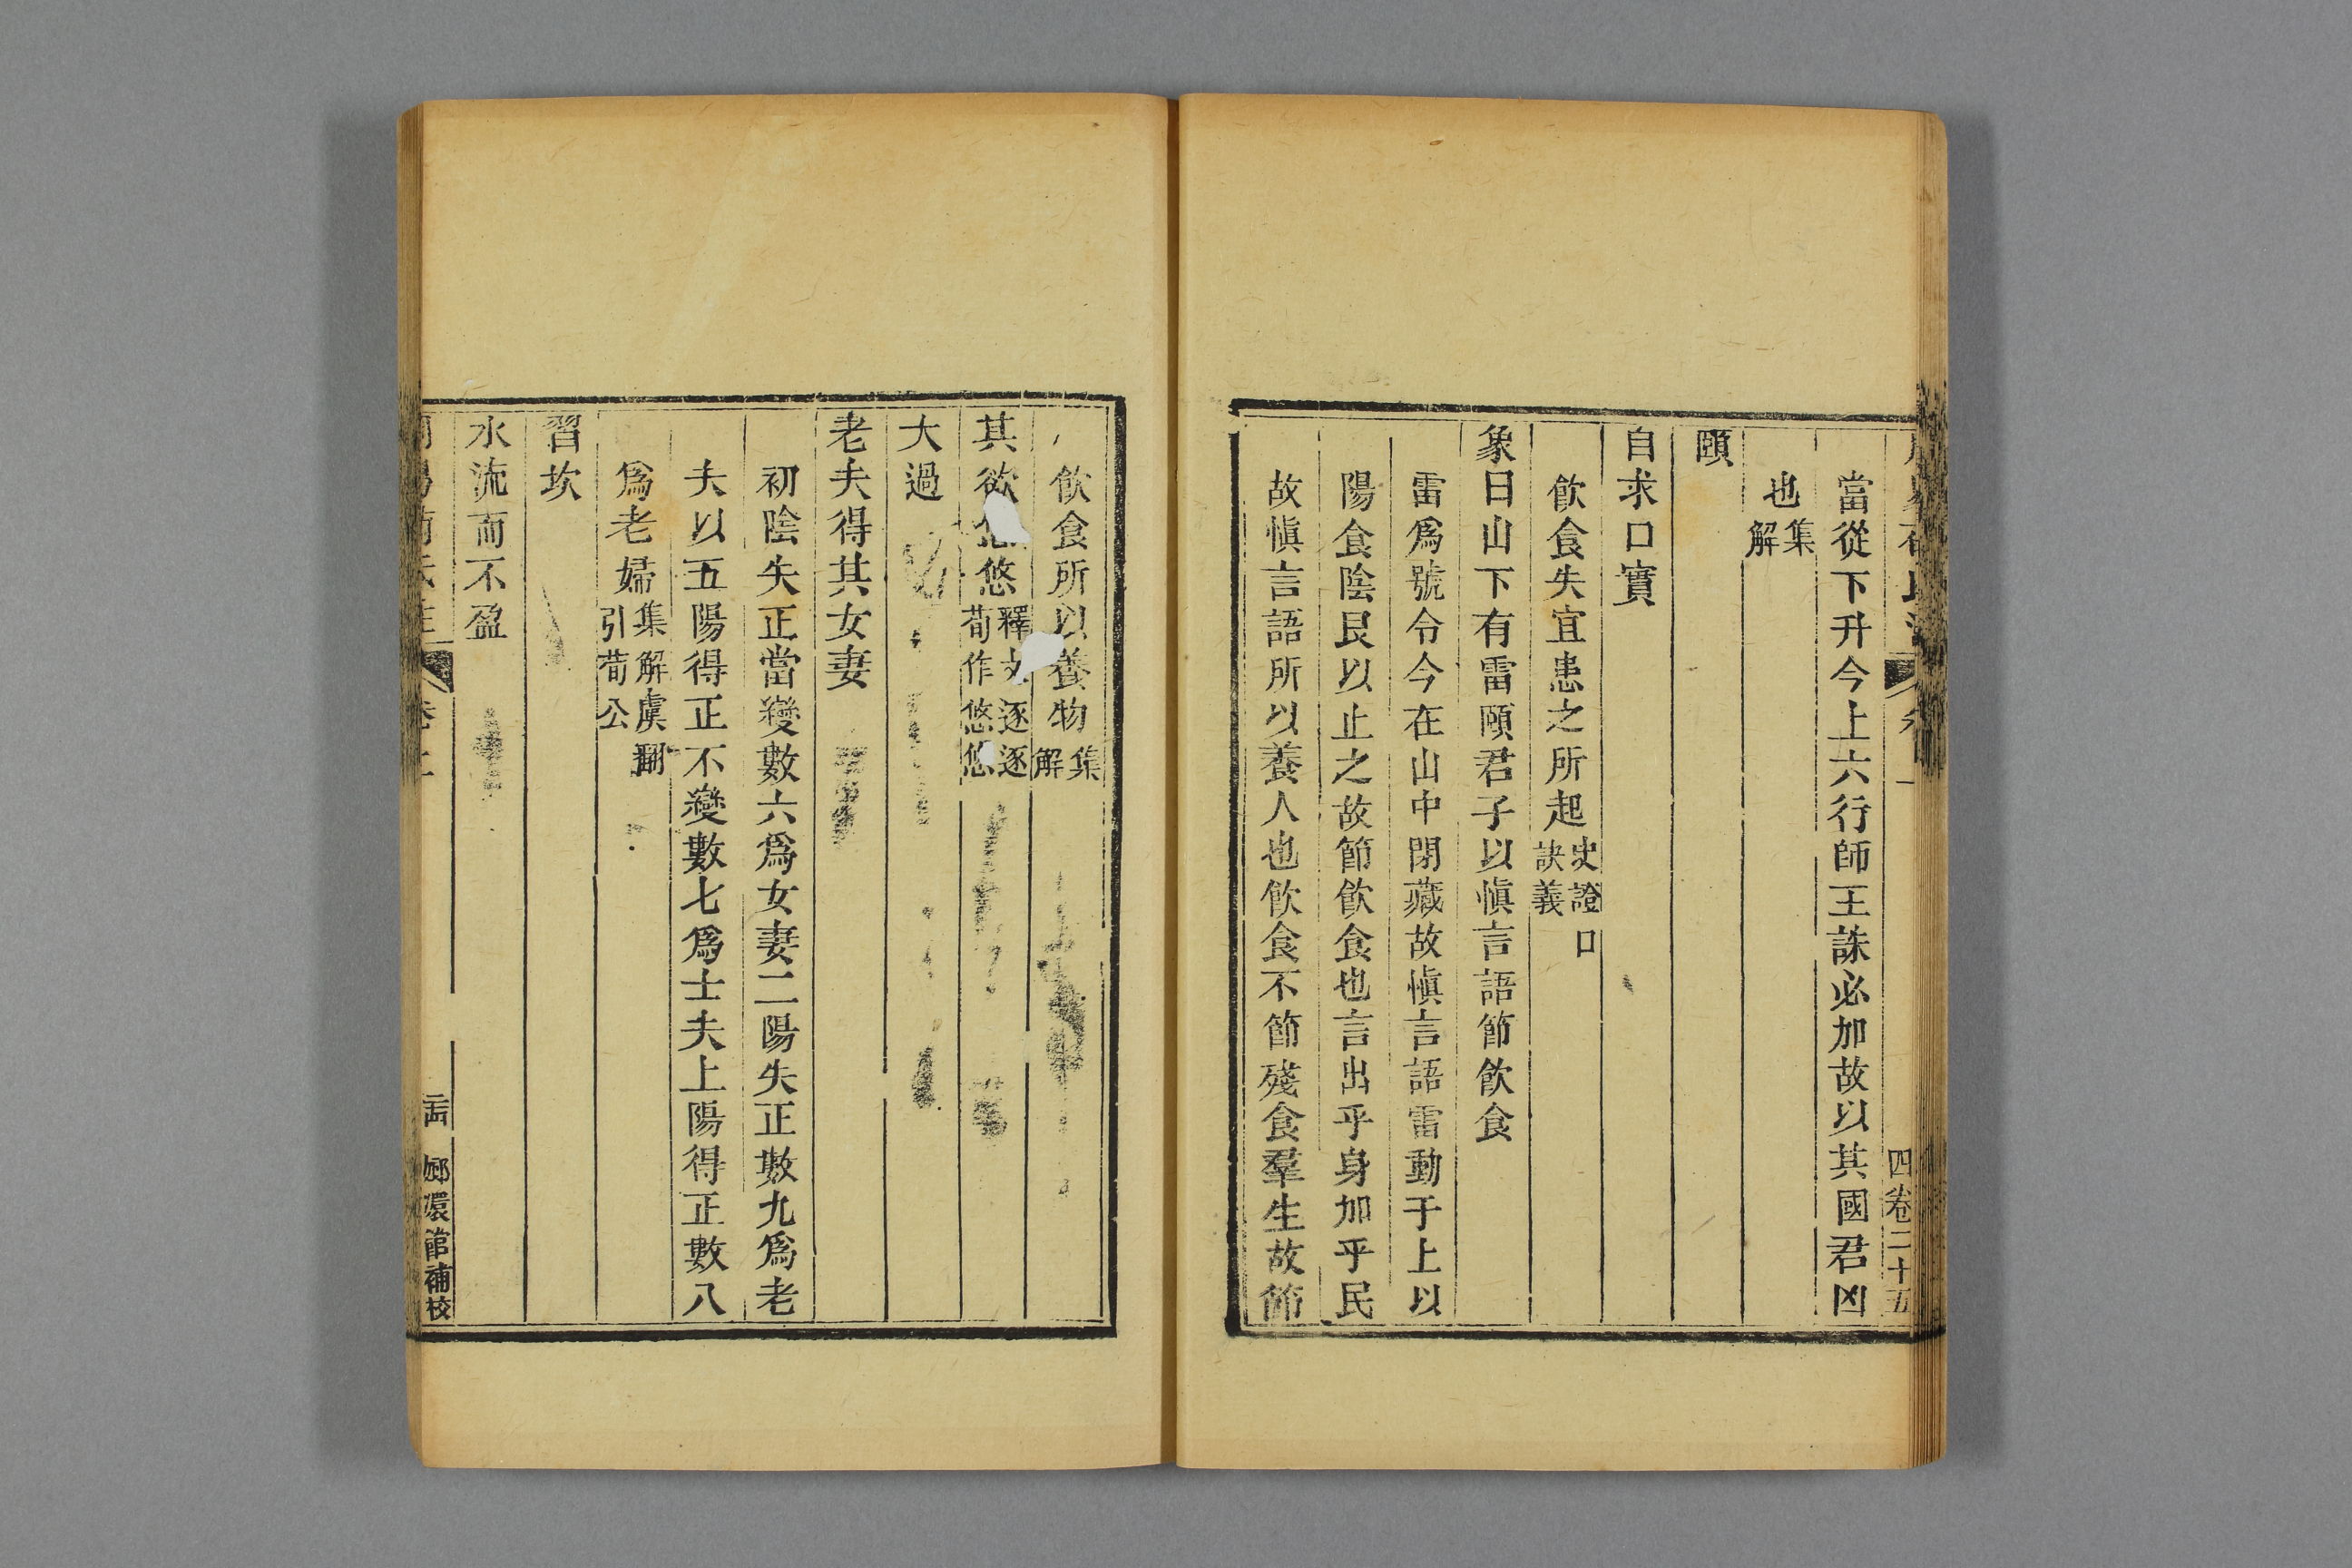 四卷二十五
當從下升今上六行師王誅必加故以其國君凶
也集解
頤
自求口實
飮食失宜患之所起史證口訣義
象曰山下有雷頤君子以愼言語節飮食
雷爲號令今在山中閉藏故愼言語雷動于上以
陽食陰艮以止之故節飮食也言出乎身加乎民
故愼言語所以養人也飮食不節殘食羣生故節
飮食所以養物集解
其欲悠悠釋文逐逐荀作悠悠
大過
老夫得其女妻
初陰失正當變數六爲女妻二陽失正數九爲老
夫以五陽得正不變數七爲士夫上陽得正數八
爲老婦集解虞翻引荀公
習坎
水流而不盈
嫏環館補校